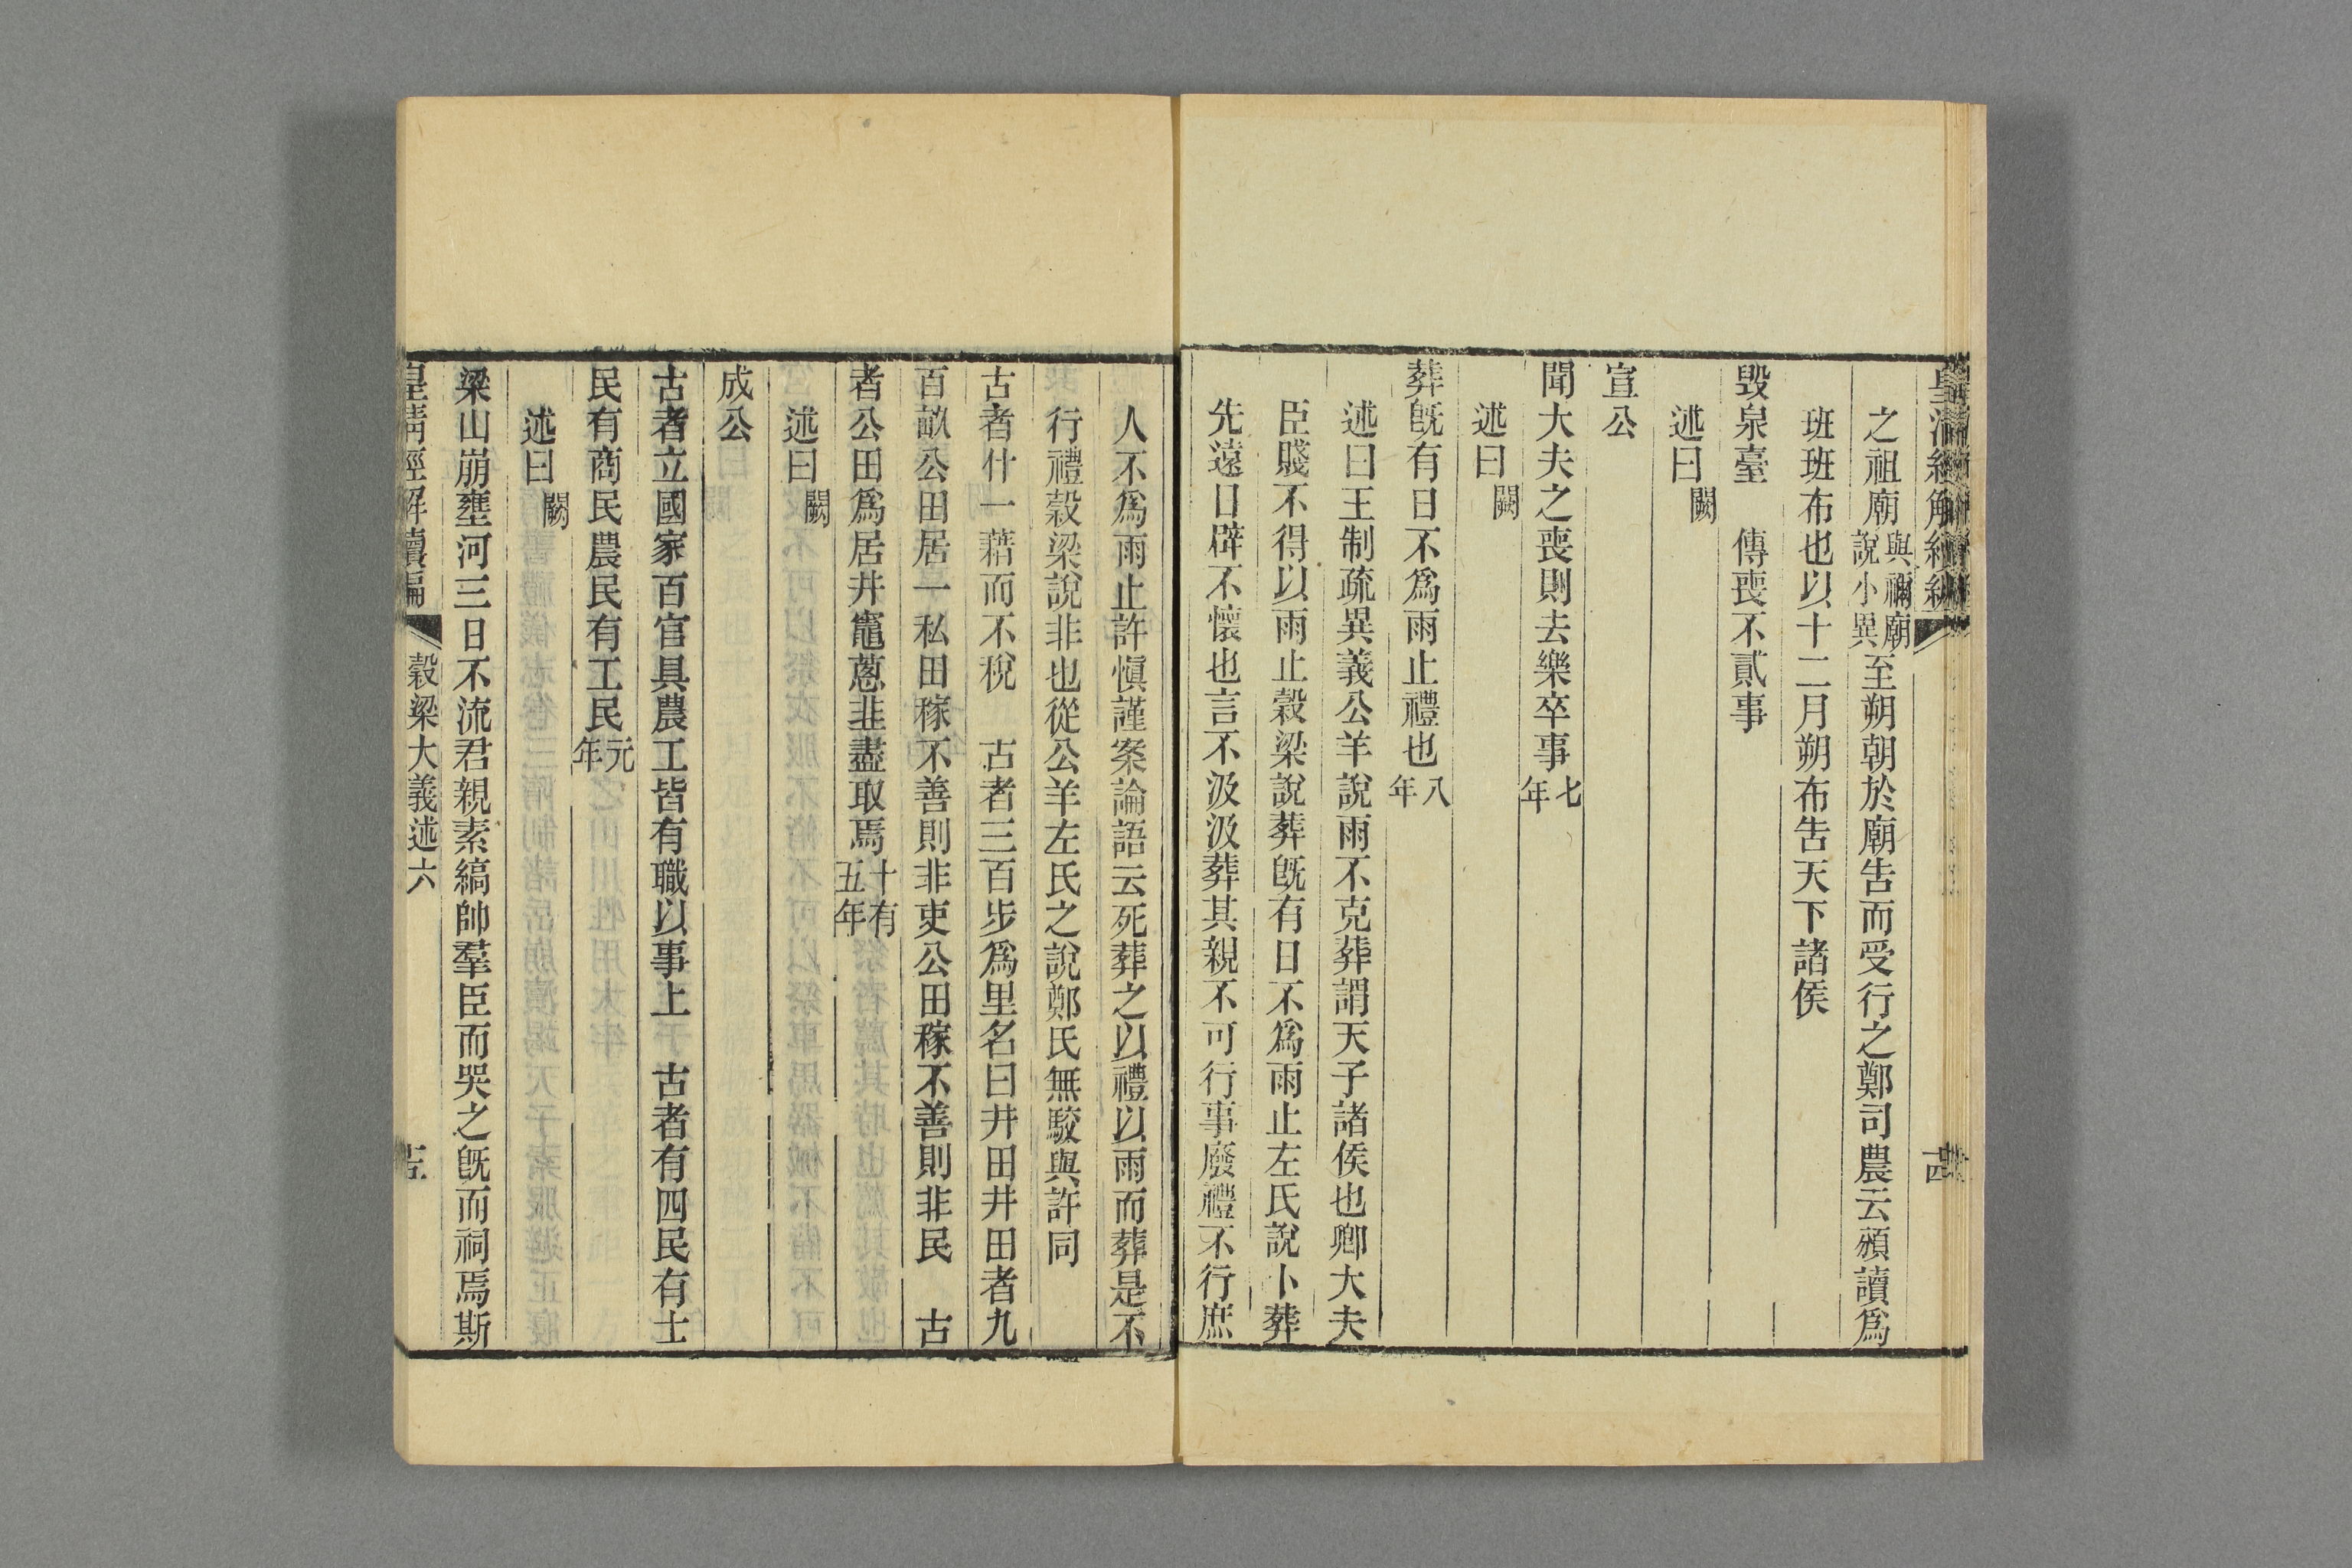 皇清經解續編
之祖廟與禰廟說小異至朔朝於廟告而受行之鄭司農云頒讀爲
班班布也以十二月朔布告天下諸侯
毀泉臺　傳喪不貳事
述曰闕
宣公
聞大夫之喪則去樂卒事七年
述曰闕
葬旣有日不爲雨止禮也八年
述曰王制疏異義公羊說雨不克葬謂天子諸侯也卿大夫
臣賤不得以雨止穀梁說葬旣有日不爲雨止左氏說卜葬
先遠日辟不懷也言不汲汲葬其親不可行事廢禮不行庶
人不爲雨止許愼謹案論語云死葬之以禮以雨而葬是不
行禮穀梁說非也從公羊左氏之說鄭氏無駮與許同
古者什一藉而不稅　古者三百步爲里名曰井田井田者九
百畝公田居一私田稼不善則非吏公田稼不善則非民　古
者公田爲居井竈蔥韭盡取焉十有五年
述曰闕
成公
古者立國家百官具農工皆有職以事上　古者有四民有士
民有商民農民有工民元年
述曰闕
梁山崩壅河三日不流君親素縞帥羣臣而哭之旣而祠焉斯
皇清經解續編　穀梁大義述六